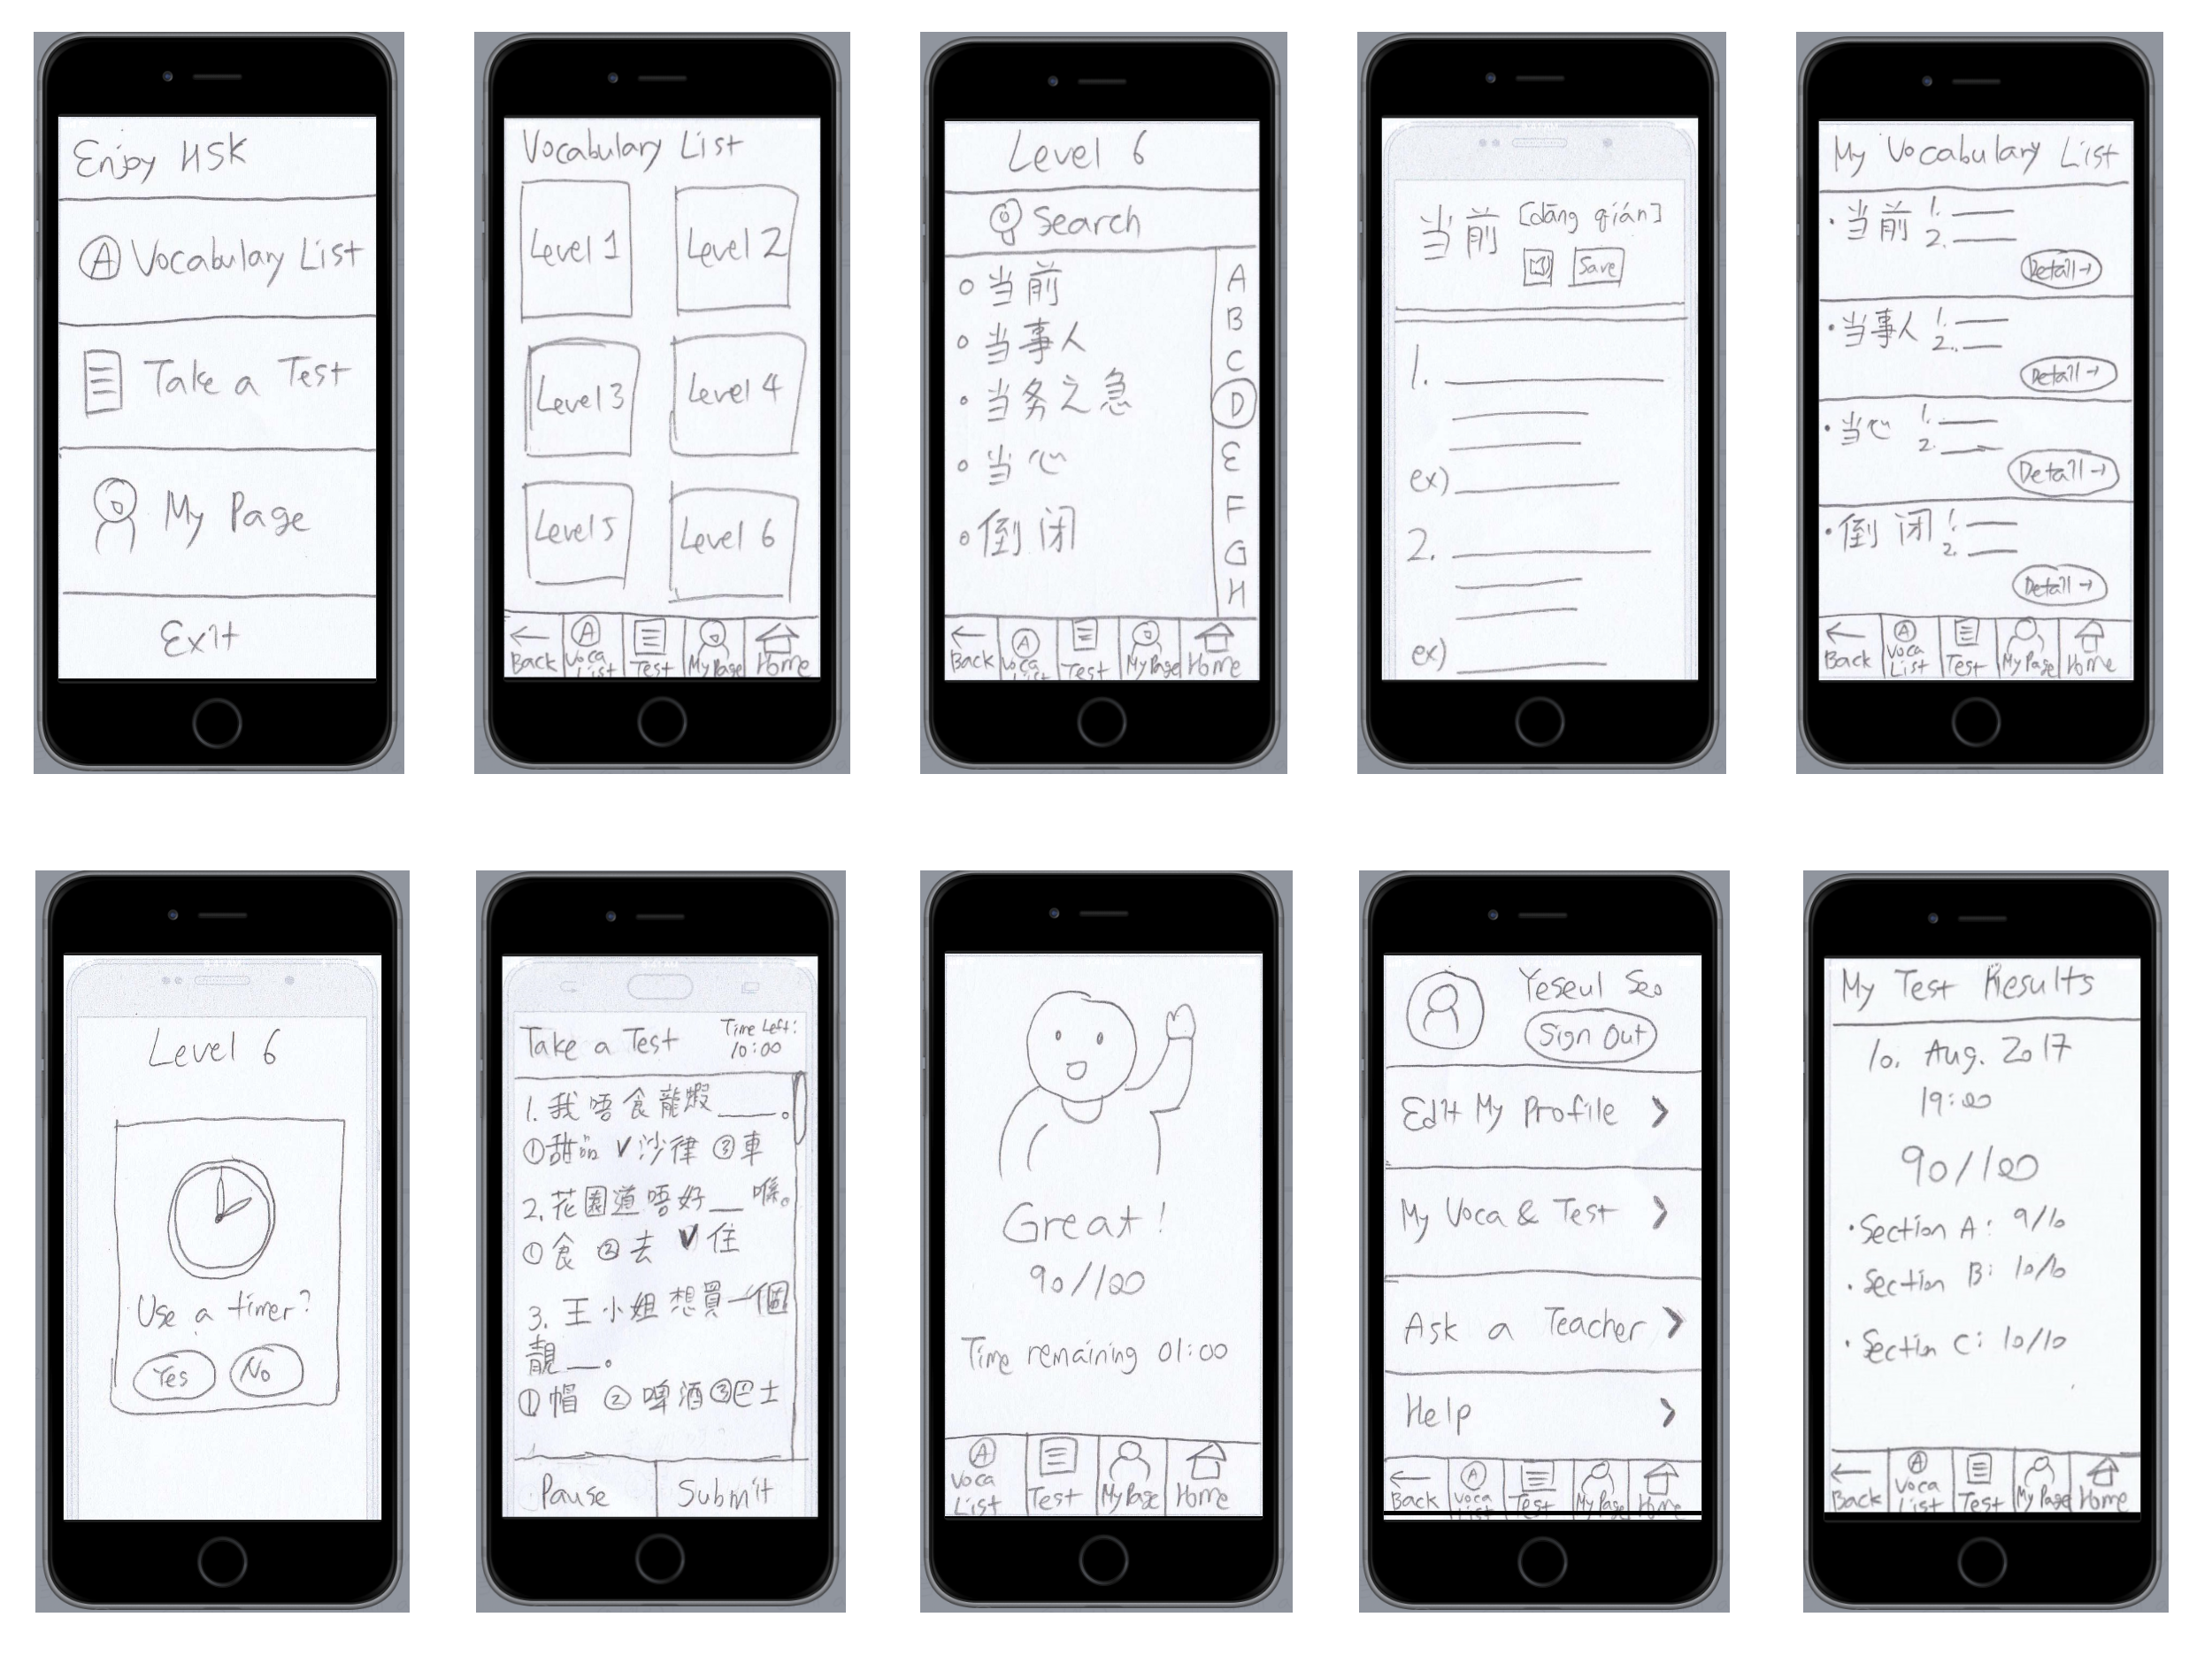 Enjoy HSK
A Vocabulary List
Take a Test
My Page
Exit
Vocabulary List
Level 1 Level 2
Level 3 Level 4
Level 5 Level 6
Back A Voca List Test My Page Home
Level 6
Search
当前
当事人
当务之急
当心
倒闭
A
B
C
D
E
F
G
H
Back A Voca List Test My Page Home
当前 [dāng qián]
Save
1.
ex)
2.
ex)
My Vocabulary List
• 当前 1.
2.
Detail →
• 当事人 1.
2.
Detail →
• 当心 1.
2.
Detail →
• 倒闭 1.
2.
Detail →
Back A Voca List Test My Page Home
Level 6
Use a timer?
Yes No
Take a Test Time Left:
10:00
1. 我唔食龍蝦___。
①甜品 ✓沙律 ③車
2. 花園道唔好__喺。
①食 ②去 ✓住
3. 王小姐想買一個
靚__。
①帽 ②啤酒 ③巴士
Pause Submit
Great!
90/100
Time remaining 01:00
A Voca List Test My Page Home
Yeseul Seo
Sign Out
Edit My Profile >
My Voca & Test >
Ask a Teacher >
Help >
Back A Voca List Test My Page Home
My Test Results
10. Aug. 2017
19:00
90/100
• Section A: 9/10
• Section B: 10/10
• Section C: 10/10
Back A Voca List Test My Page Home